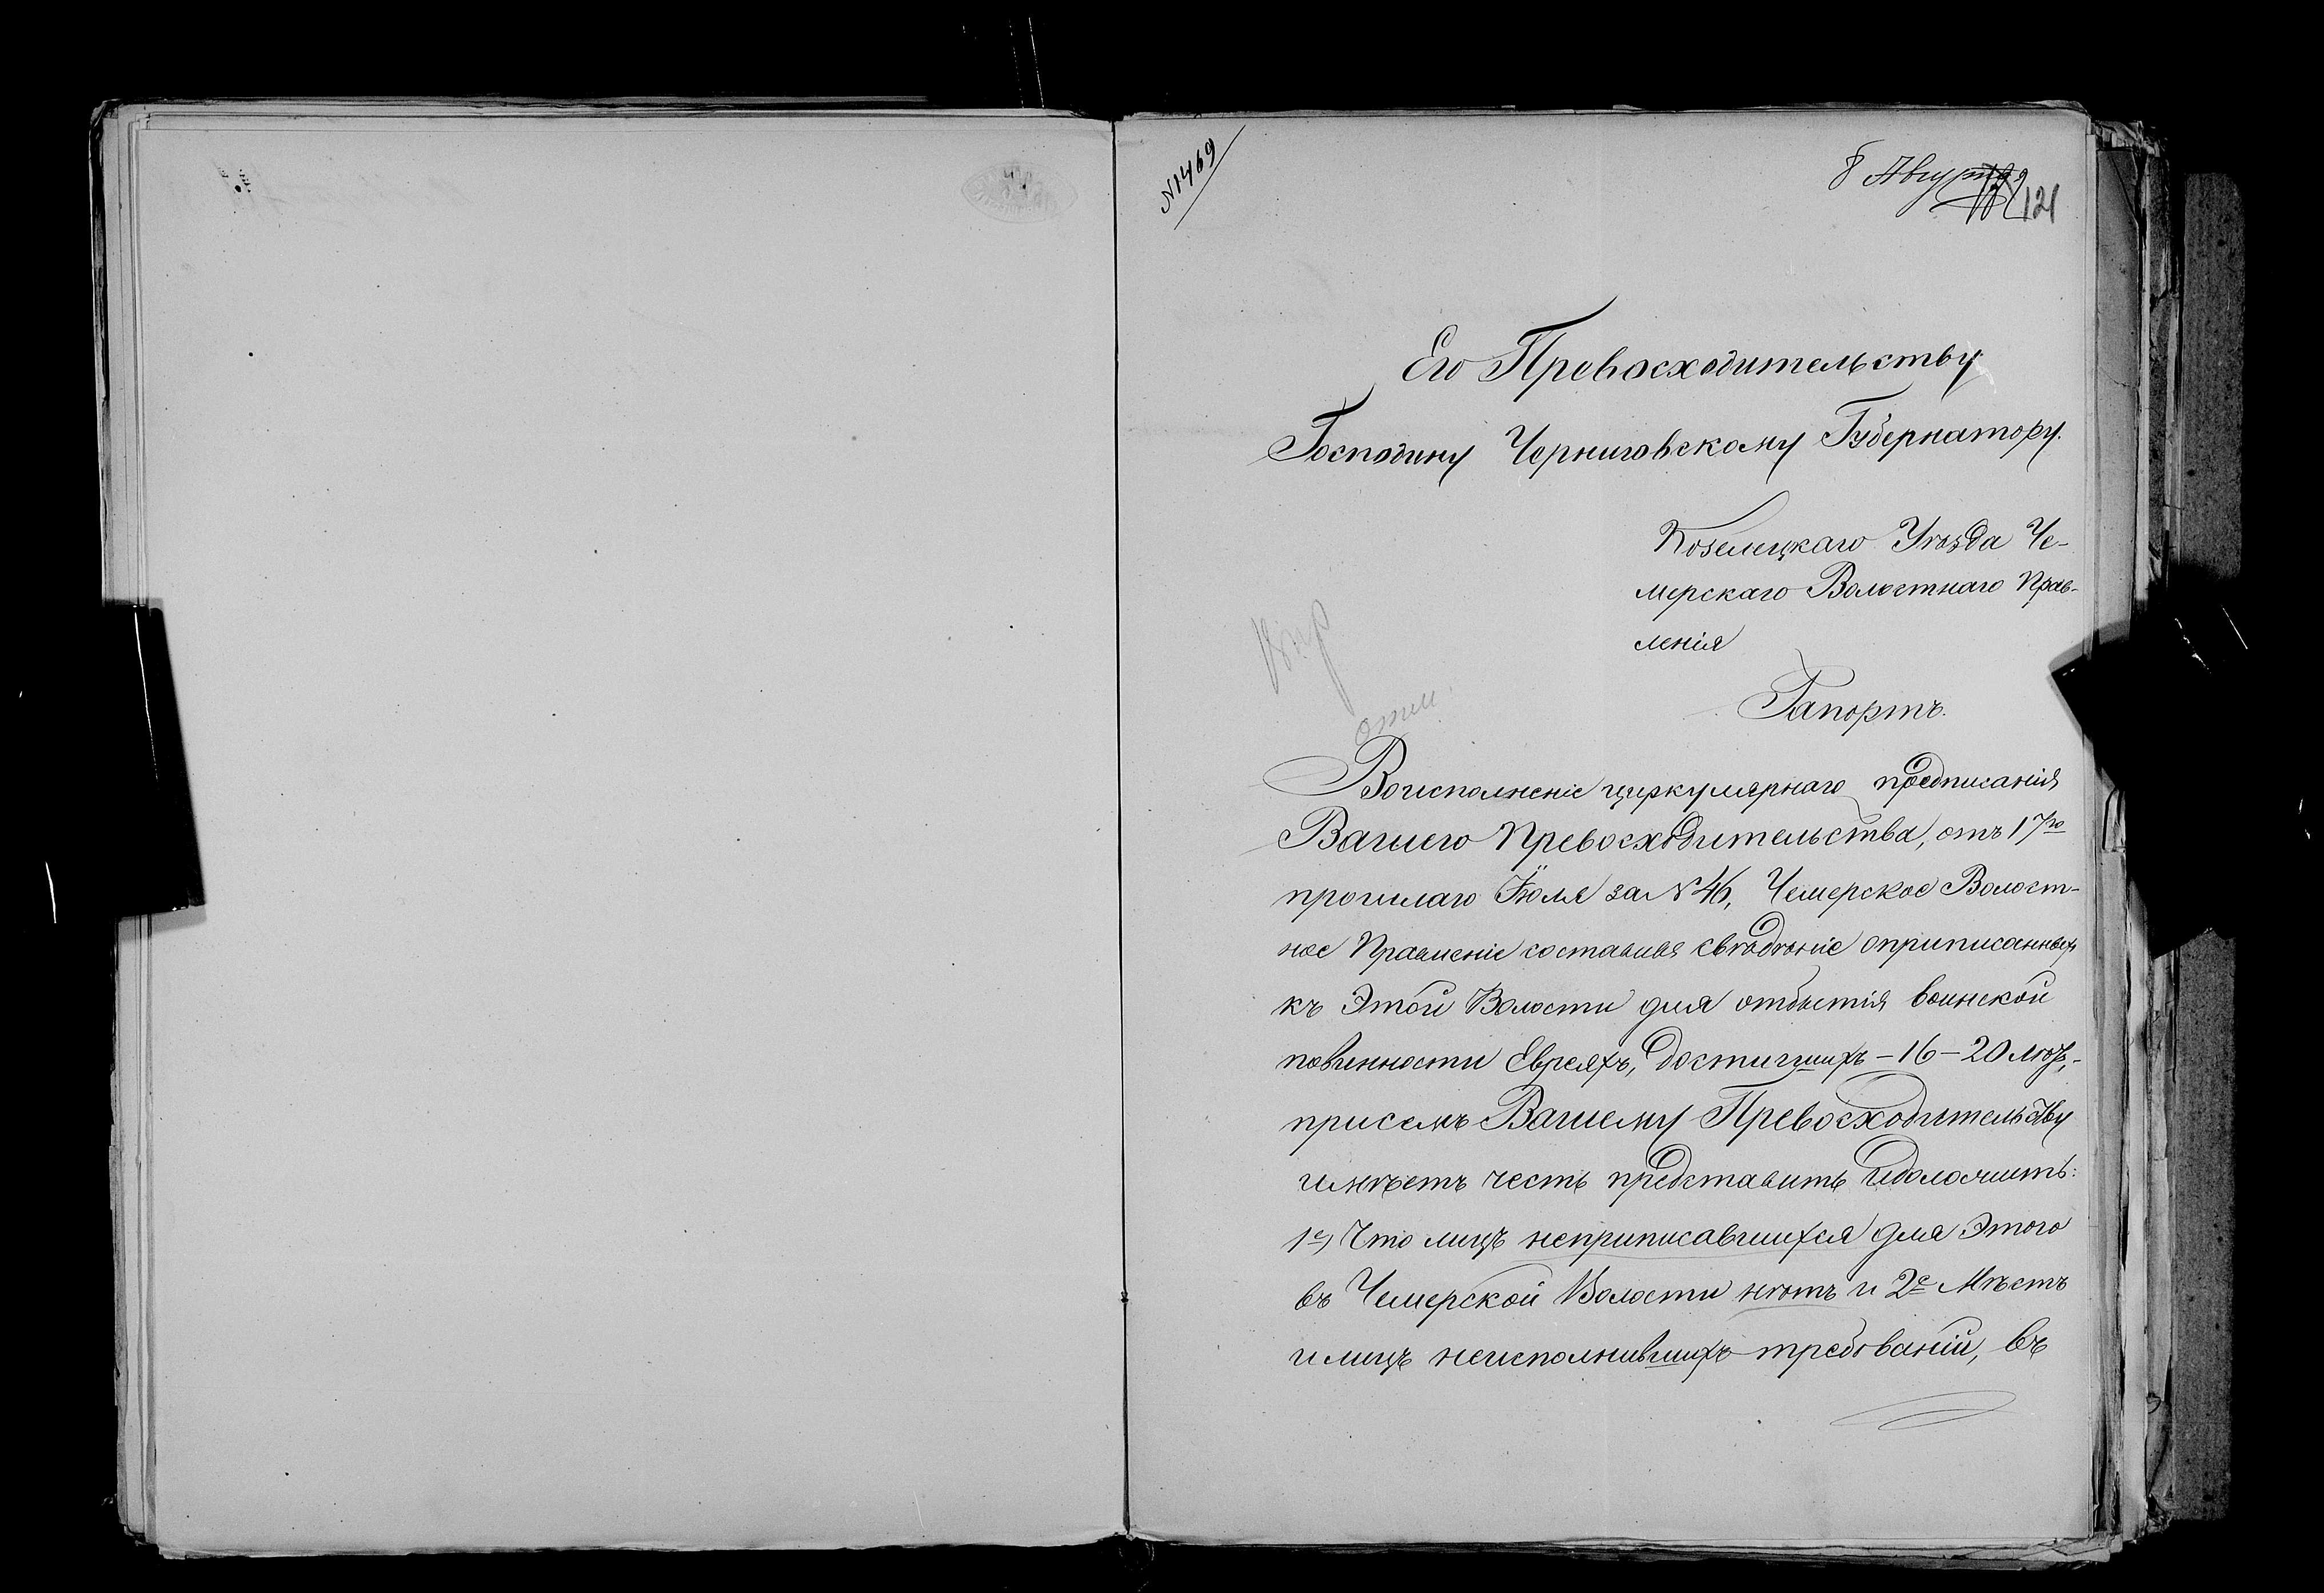 № 1469
8 Августа
121
Его Превосходительству
Господину Черниговскому Губернатору.
Козелецкаго Уѣзда Че-
мерскаго Волостнаго Прав-
ленія
Рапортъ.
Воисполненіе циркулярнаго предписанія
Вашего Превосходительства, отъ 17го
прошлаго Іюля за № 46, Чемерское Волост-
ное Правленіе составивъ свѣдѣніе оприписанныхъ
къ Этой Волости для отбытія воинской
повинности Евреяхъ, достигшихъ – 16 – 20 лѣтъ, -
присемъ Вашему Превосходительству
имѣетъ честь представить идоложить:
1е) Что лицъ неприписавшихся для Этого
въ Чемерской Волости нѣтъ и 2е Мѣстъ
и лицъ неисполнившихъ требованій, въ